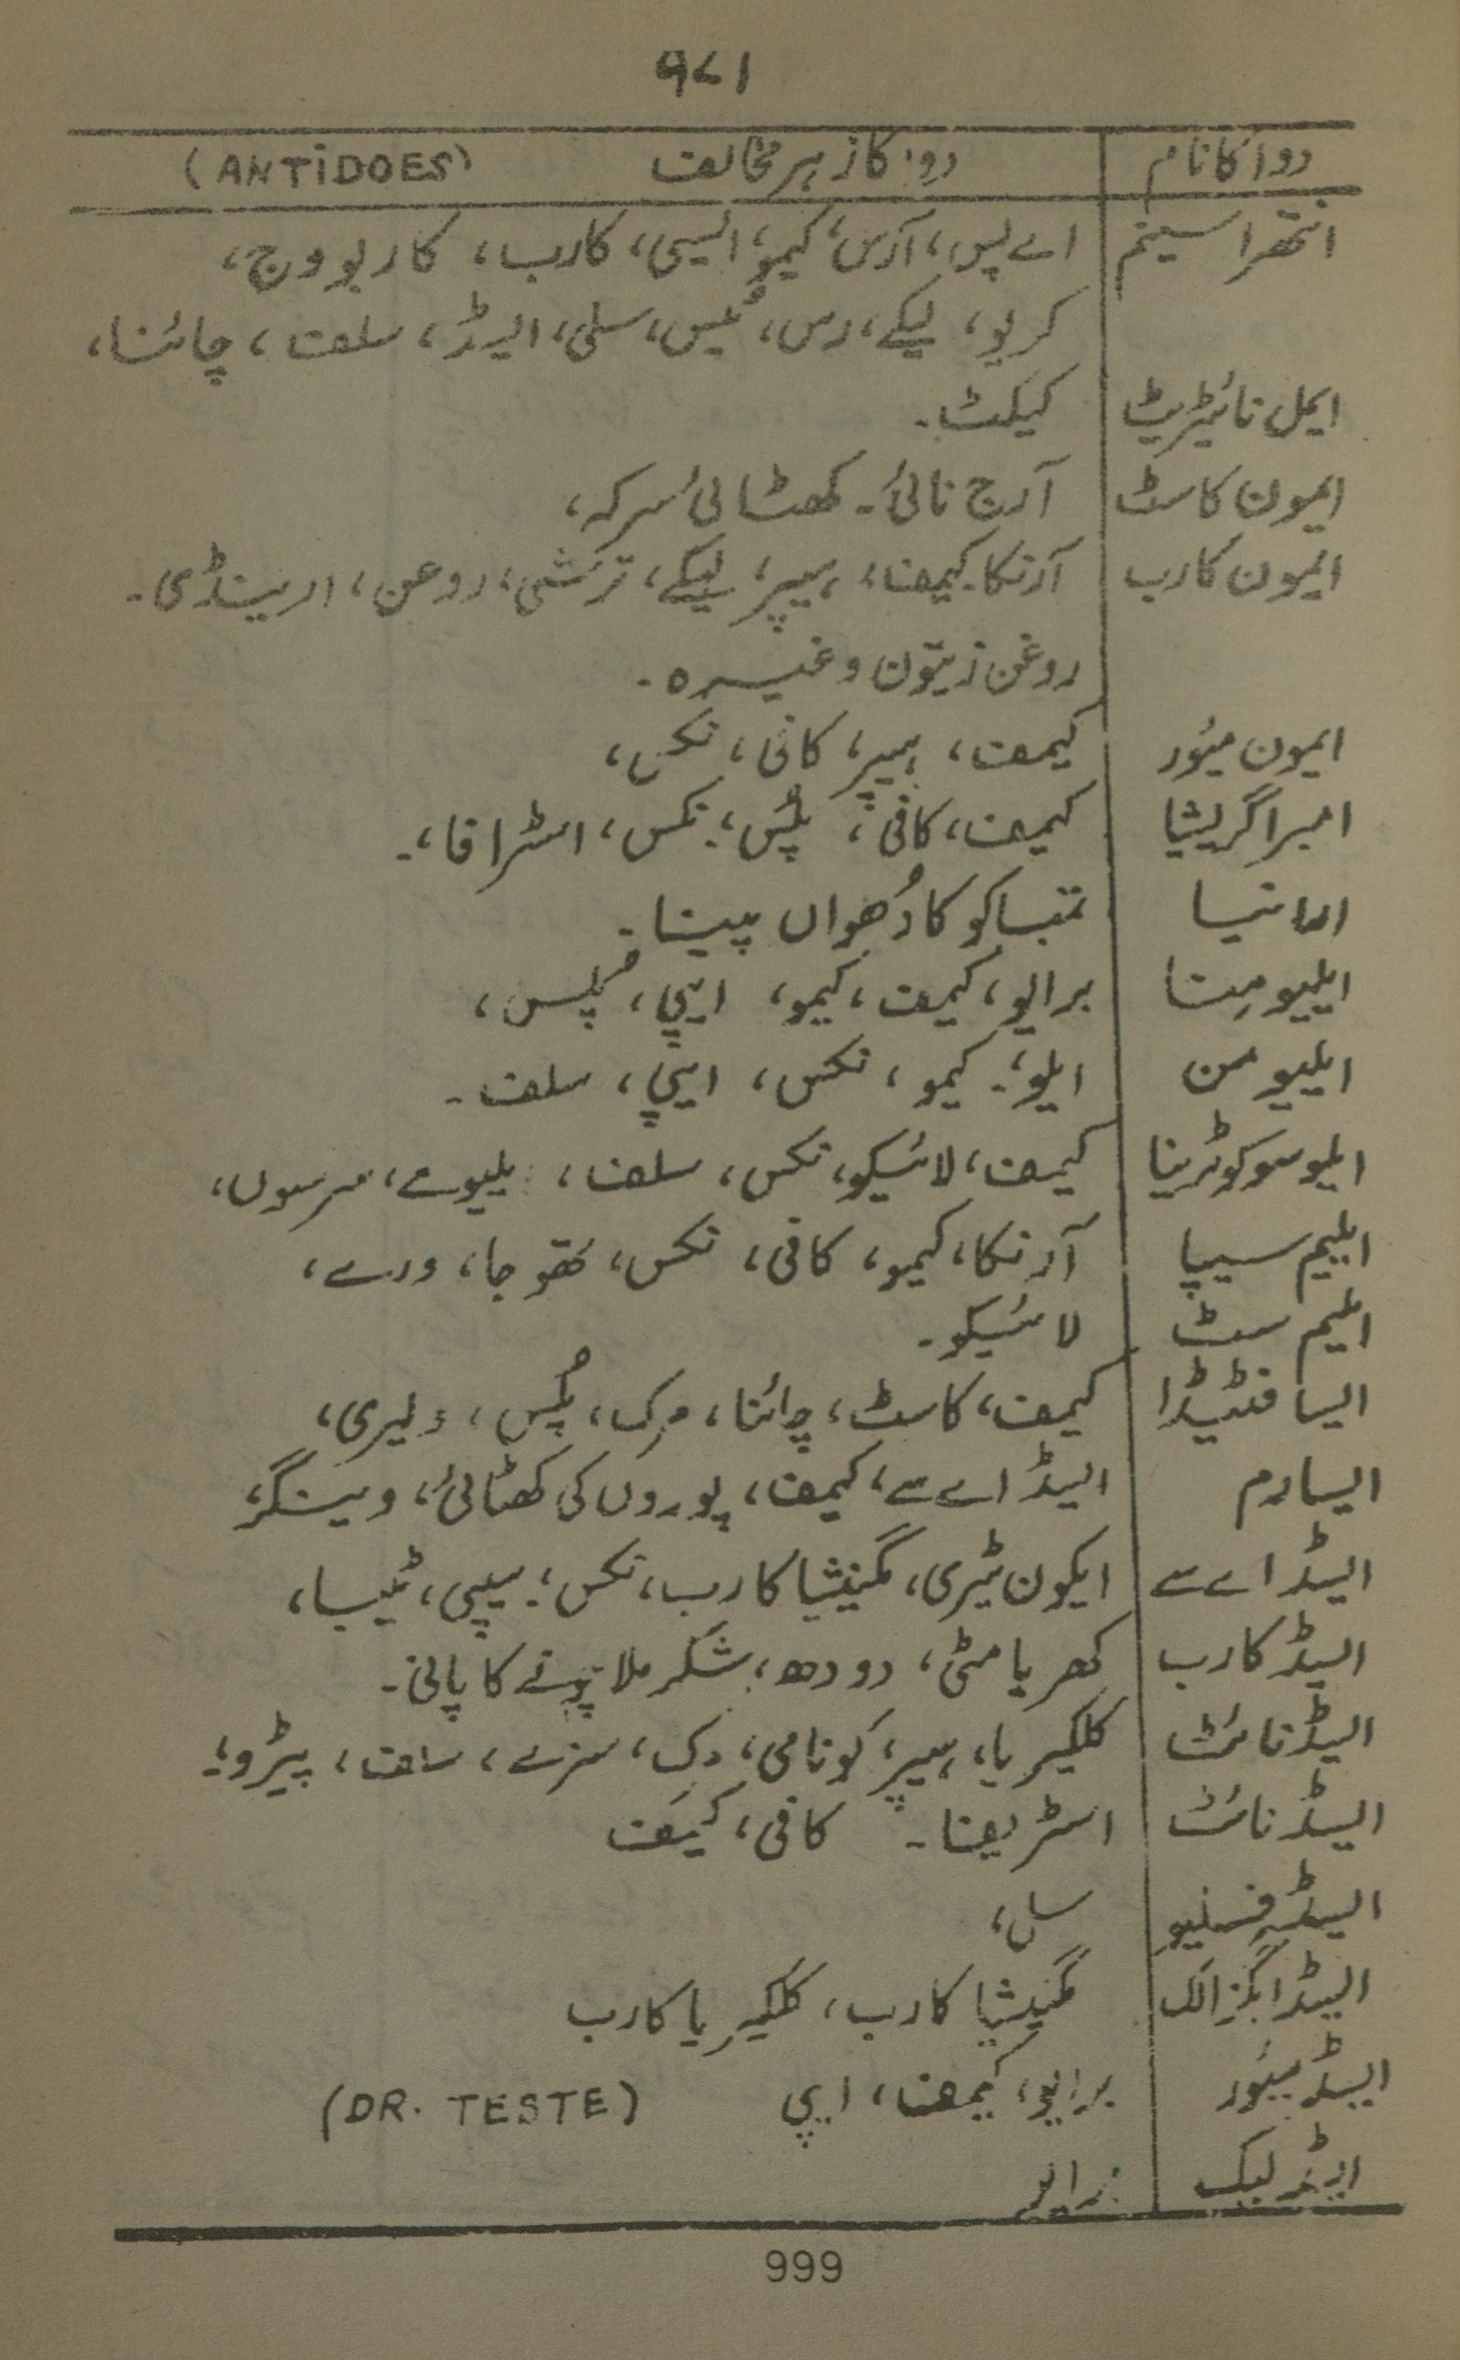 ۹۷۱
دوا کا نام دوا کا زہر مخالف (ANTiDOES)
انتھراسینم اے پس، آرس، کیمو، ایسی، کارب، کاربو وج،
کریو، لیکے، رس، پلس، سلی، ایسڈ، سلف، چائنا،
ایمل نائیٹریٹ کیکٹ۔
ایمون کاسٹ آرج نائی۔ کھٹائی سرکہ،
ایمون کارب آرنکا۔ کیمف، ہیپر، لیکے، ترشی، روغن، ارینڈی۔
روغن زیتون وغیرہ۔
ایمون میُور کیمف، ہیپر، کافی، نکس،
امبرا گریشیا کیمف، کافی، پلس، نکس، اسٹرافا،۔
تمباکو کا دُھواں پینا۔
ایلیومِنا برایو، کیمف، کیمو، ایپی، پُلس،
ایلیومن ایلو،۔ کیمو، نکس، ایپی، سلف۔
ایلو سوکوٹرینا کیمف، لائیکو، نکس، سلف، یلیوے، سرسوں،
ایلیم سیپا آرنکا، کیمو، کافی، نکس، تھوجا، ورے،
ایلیم سٹ لائیکو۔
ایسا فٹیڈا کیمف، کاسٹ، چائنا، مرک، پُلس، ولیری،
ایسارم ایسڈ اے سے، کیمف، پودوں کی کھٹائی، وینگر،
ایسڈ اے سے ایکون ٹیری، مگنیشیا کارب، نکس، سیپی، ٹیبا،
ایسڈ کارب کھریا مٹی، دودھ، شکر ملا چونے کا پانی۔
ایسڈ نائٹ کلکیریا، ہیپر، کونامی، مرک، سلف، پیٹرو،
ایسڈ نائٹ کافی، کیمف
ایسڈ فلیو
ایسڈ اگزالک مگنیشیا کارب، کلکیریا کارب
ایسڈ میُور برایو، کیمف، ایپی (DR. TESTE)
ایسڈ لیک
999